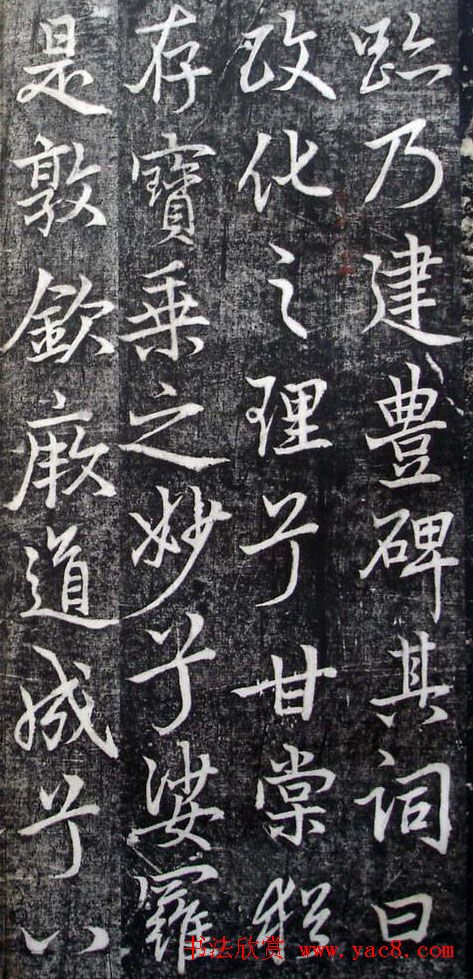 跡乃建豐碑其詞曰
政化之理兮甘棠猶
存寶乘之妙兮娑羅
是敦欽厥道成兮八
书法欣赏 www.yac8.com